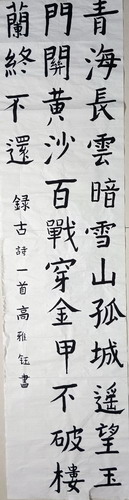 青海長雲暗雪山孤城遥望玉
門關黄沙百戰穿金甲不破樓
蘭終不還
録古詩一首高雅鈺書